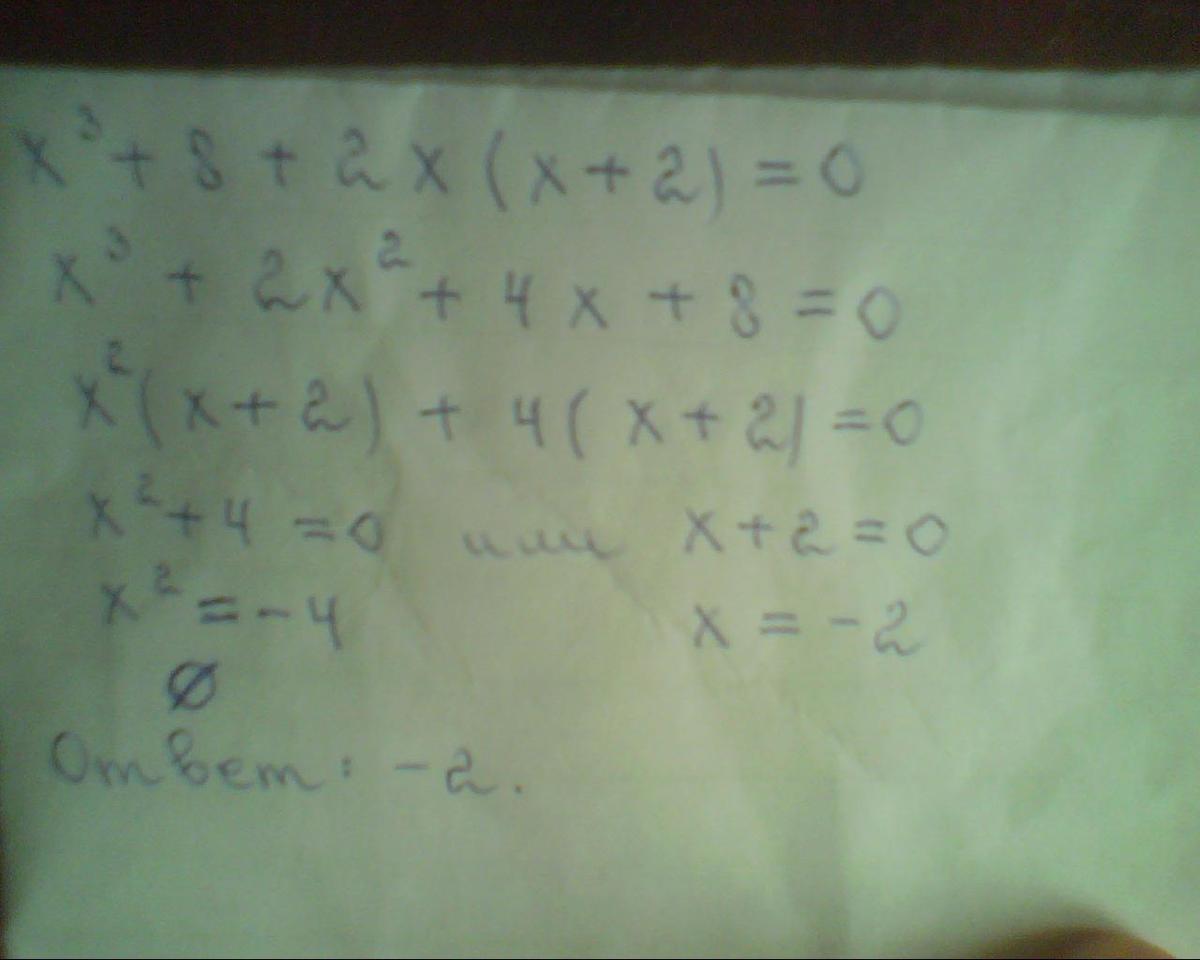 x³ + 8 + 2x(x+2) = 0
x³ + 2x² + 4x + 8 = 0
x²(x+2) + 4(x+2) = 0
x² + 4 = 0 или x + 2 = 0
x² = -4 x = -2
∅
Ответ: -2.